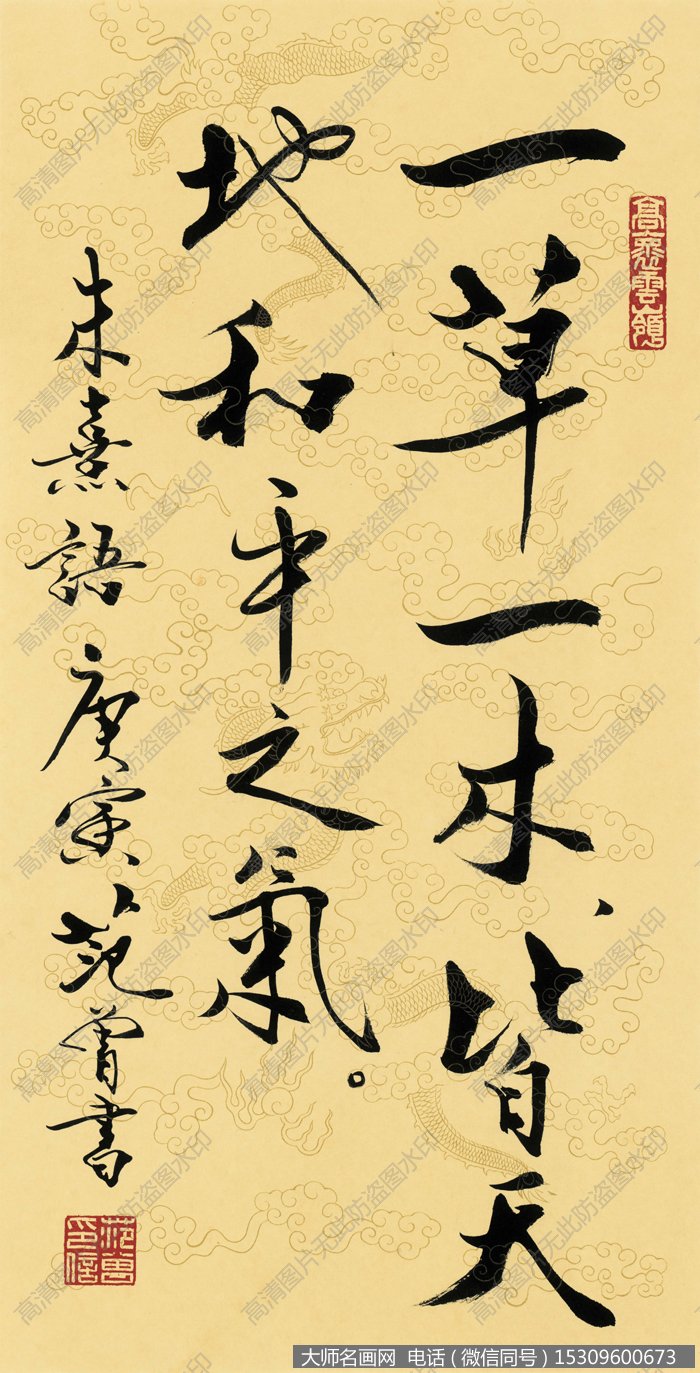 一草一木、皆天
地和平之氣。
朱熹語 庚寅 范曾書
范曾印信
高清图片无此防盗图水印
大师名画网 电话（微信同号）15309600673